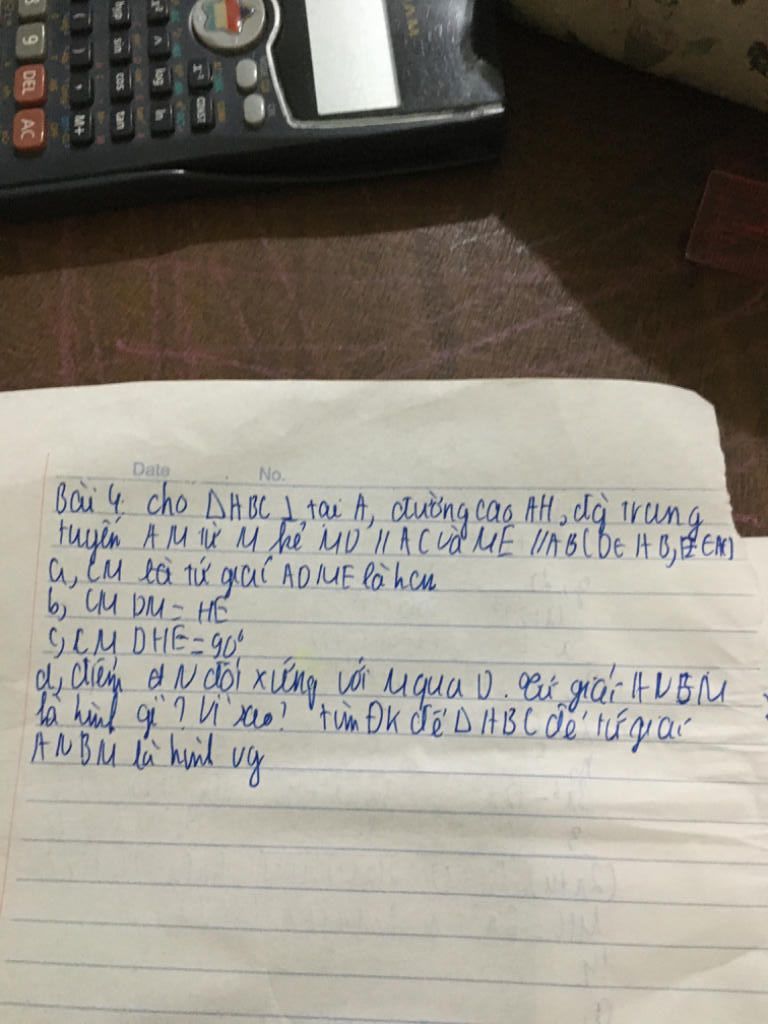 DEL
AC
M+
CONST
hyp
sin
cos
tan
log
ln
9
Date . No.
Bài 4. cho ΔABC ⊥ tại A, đường cao AH, đg trung
tuyến AM từ M kẻ MD // AC và ME // AB (D∈ AB, E ∈ AC)
a, CM tứ giác ADME là hcn
b, CM DM = HE
c, CM DHE = 90°
d, điểm N đối xứng với M qua D. tứ giác ANBM
là hình gì? Vì sao? tìm ĐK để ΔABC để tứ giác
ANBM là hình vg